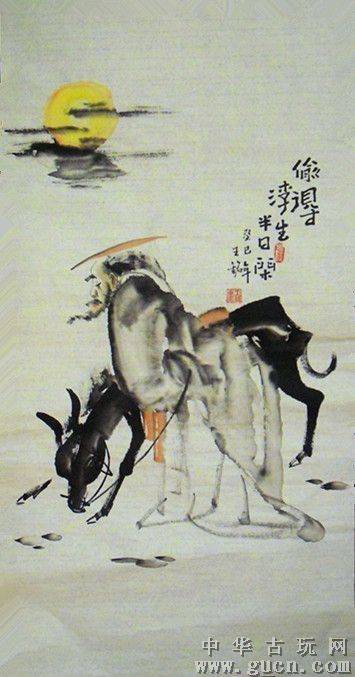 偷得
浮生
半日閑
癸巳年
中华古玩网
www.gucn.com